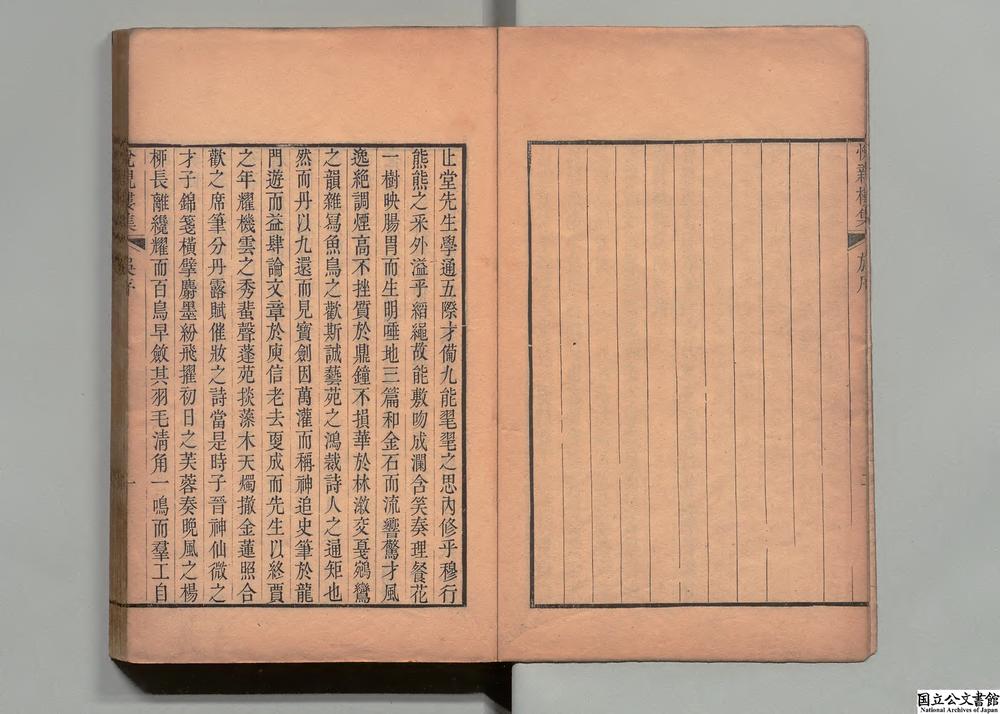 止堂先生學通五際才備九能亹亹之思內修乎穆行
熊熊之采外溢乎縚繩故能敷吻成瀾含笑奏理餐花
一樹映腸胃而生明唾地三篇和金石而流響驚才風
逸絕調煙高不挫質於鼎鐘不損華於林潋交戛鵷鸞
之韻雜寫魚鳥之歡斯誠藝苑之鴻裁詩人之通矩也
然而丹以九還而見寶劍因萬灌而稱神追史筆於龍
門遊而益肆論文章於庾信老去更成而先生以終賈
之年耀機雲之秀蜚聲蓬苑掞藻木天燭撤金蓮照合
歡之席筆分丹露賦催妝之詩當是時子晉神仙微之
才子錦箋橫擘麝墨紛飛擢初日之芙蓉奏晚風之楊
栁長離纔耀而百鳥早斂其羽毛清角一鳴而羣工自
集
吳序
一
集
施序
国立公文書館
National Archives of Japan